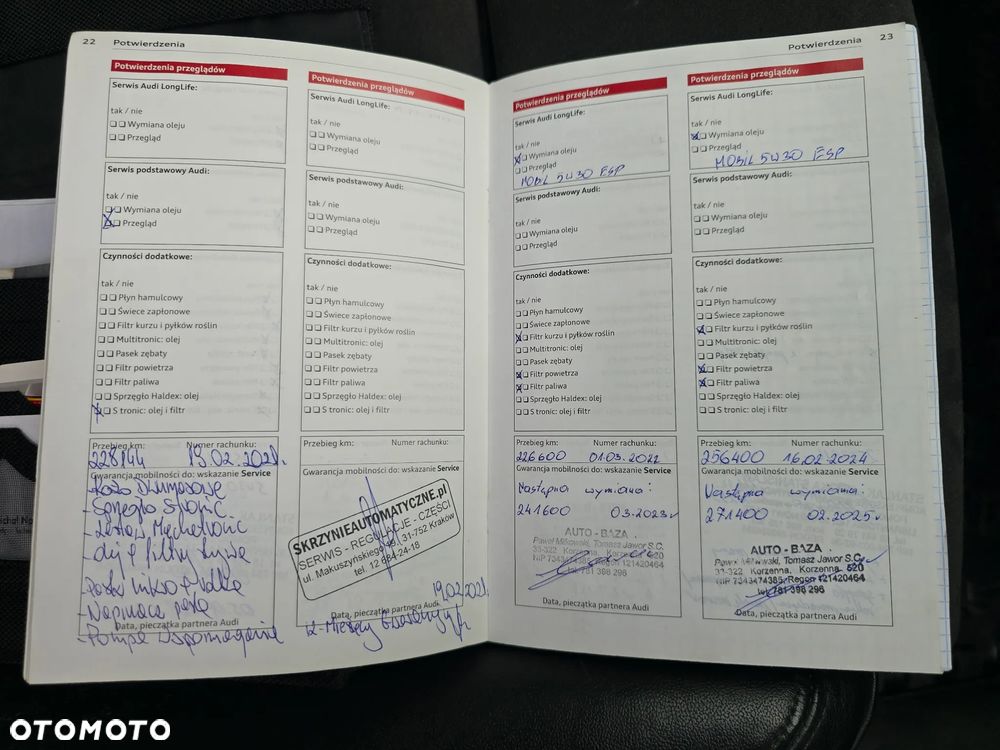 22 Potwierdzenia
Potwierdzenia przeglądów
Serwis Audi LongLife:
tak / nie
Wymiana oleju
Przegląd
Serwis podstawowy Audi:
tak / nie
Wymiana oleju
Przegląd
Czynności dodatkowe:
tak / nie
Płyn hamulcowy
Świece zapłonowe
Filtr kurzu i pyłków roślin
Multitronic: olej
Pasek zębaty
Filtr powietrza
Filtr paliwa
Sprzęgło Haldex: olej
S tronic: olej i filtr
Przebieg km: Numer rachunku:
228144 19.02.2021r.
Gwarancja mobilności do: wskazanie Service
- Koło Dwumasowe
- Sprzęgło Stronic
- Mechatronic
- olej
- Pompa Wspomagania
Data, pieczątka partnera Audi
Potwierdzenia przeglądów
Serwis Audi LongLife:
tak / nie
Wymiana oleju
Przegląd
Serwis podstawowy Audi:
tak / nie
Wymiana oleju
Przegląd
Czynności dodatkowe:
tak / nie
Płyn hamulcowy
Świece zapłonowe
Filtr kurzu i pyłków roślin
Multitronic: olej
Pasek zębaty
Filtr powietrza
Filtr paliwa
Sprzęgło Haldex: olej
S tronic: olej i filtr
Przebieg km: Numer rachunku:
Gwarancja mobilności do: wskazanie Service
SKRZYNIEAUTOMATYCZNE.pl
SERWIS - REGULACJE - CZĘŚCI
ul. Makuszyńskiego 31-752 Kraków
tel. 12 684-24-18
19.02.2021
Data, pieczątka partnera Audi
12-Miesięcy Gwarancji
Potwierdzenia 23
Potwierdzenia przeglądów
Serwis Audi LongLife:
tak / nie
Wymiana oleju
Przegląd
MOBIL 5W30 ESP
Serwis podstawowy Audi:
tak / nie
Wymiana oleju
Przegląd
Czynności dodatkowe:
tak / nie
Płyn hamulcowy
Świece zapłonowe
Filtr kurzu i pyłków roślin
Multitronic: olej
Pasek zębaty
Filtr powietrza
Filtr paliwa
Sprzęgło Haldex: olej
S tronic: olej i filtr
Przebieg km: Numer rachunku:
226600 01.03.2022
Gwarancja mobilności do: wskazanie Service
Następna wymiana:
241600 03.2023r
AUTO - BAZA
Paweł Miłkowski, Tomasz Jawor S.C.
33-322 Korzenna, Korzenna 520
Regon 121420464
tel. 781 396 296
Data, pieczątka partnera Audi
Potwierdzenia przeglądów
Serwis Audi LongLife:
tak / nie
Wymiana oleju
Przegląd
MOBIL 5W30 ESP
Serwis podstawowy Audi:
tak / nie
Wymiana oleju
Przegląd
Czynności dodatkowe:
tak / nie
Płyn hamulcowy
Świece zapłonowe
Filtr kurzu i pyłków roślin
Multitronic: olej
Pasek zębaty
Filtr powietrza
Filtr paliwa
Sprzęgło Haldex: olej
S tronic: olej i filtr
Przebieg km: Numer rachunku:
256400 16.02.2024
Gwarancja mobilności do: wskazanie Service
Następna wymiana:
271400 02.2025r
AUTO - BAZA
Paweł Miłkowski, Tomasz Jawor S.C.
33-322 Korzenna, Korzenna 520
NIP 7343474385, Regon 121420464
tel. 781 396 296
Data, pieczątka partnera Audi
OTOMOTO